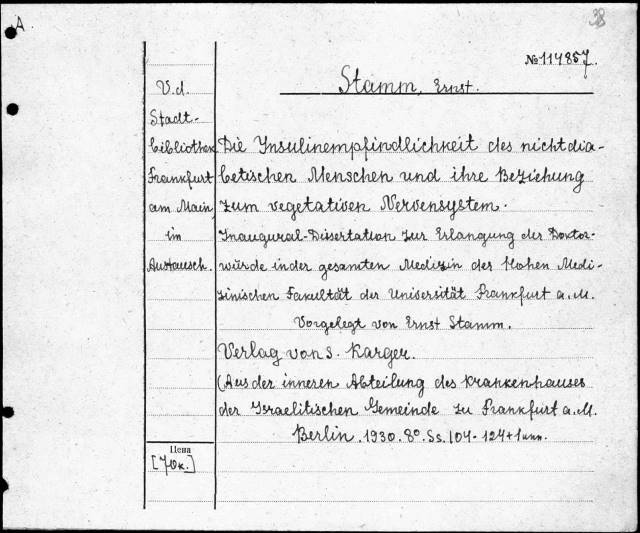 A.
38
№ 114857.
Stamm, Ernst.
V.d.
Stadt-
bibliothek
Frankfurt
am Main,
im
Austausch.
Die Insulinempfindlichkeit des nichtdia-
betischen Menschen und ihre Beziehung
zum vegetativen Nervensystem.
Inaugural-Dissertation zur Erlangung der Doktor-
würde in der gesamten Medizin der Hohen Medi-
zinischen Fakultät der Universität Frankfurt a.M.
Vorgelegt von Ernst Stamm.
Verlag von S. Karger.
(Aus der inneren Abteilung des Krankenhauses
der Israelitischen Gemeinde zu Frankfurt a.M.
Berlin. 1930. 8° Ss. 104-124+1 unn.
Цена
[70к.]